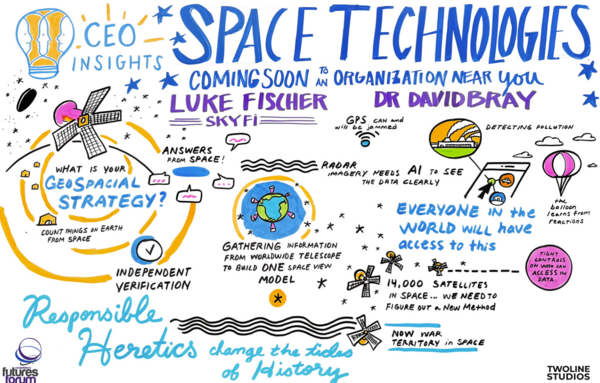 CEO
INSIGHTS
SPACE TECHNOLOGIES
COMING SOON TO AN ORGANIZATION NEAR YOU
LUKE FISCHER
SKYFI
DR DAVID BRAY
ANSWERS
FROM SPACE!
WHAT IS YOUR
GEOSPACIAL
STRATEGY?
COUNT THINGS ON EARTH
FROM SPACE
INDEPENDENT
VERIFICATION
GPS CAN and
will be jammed
RADAR
IMAGERY NEEDS AI TO SEE
THE DATA CLEARLY
DETECTING POLLUTION
the
balloon
learns from
reactions
GATHERING INFORMATION
FROM WORLDWIDE TELESCOPE
TO BUILD ONE SPACE VIEW
MODEL
EVERYONE IN the
WORLD WILL HAVE
access to this
TIGHT
CONTROLS
ON WHO CAN
ACCESS the
DATA
14,000 SATELLITES
IN SPACE... WE NEED TO
FIGURE OUT A NEW METHOD
NOW WAR
TERRITORY in SPACE
Responsible
Heretics change the tides
of History
futures
forum
TWOLINE
STUDIOS